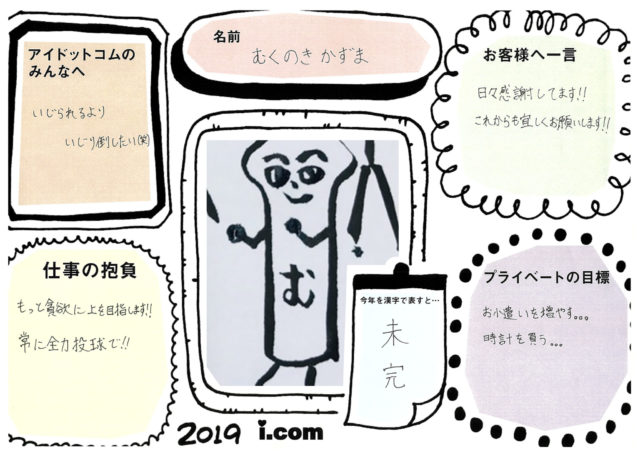 アイドットコムの
みんなへ
いじられるより
いじり倒したい(笑)
名前
むくのき かずま
お客様へ一言
日々感謝してます!!
これからも宜しくお願いします!!
む
今年を漢字で表すと…
未
完
仕事の抱負
もっと貪欲に上を目指します!!
常に全力投球で!!
プライベートの目標
お小遣いを増やす。。。
時計を買う。。。
2019 i.com